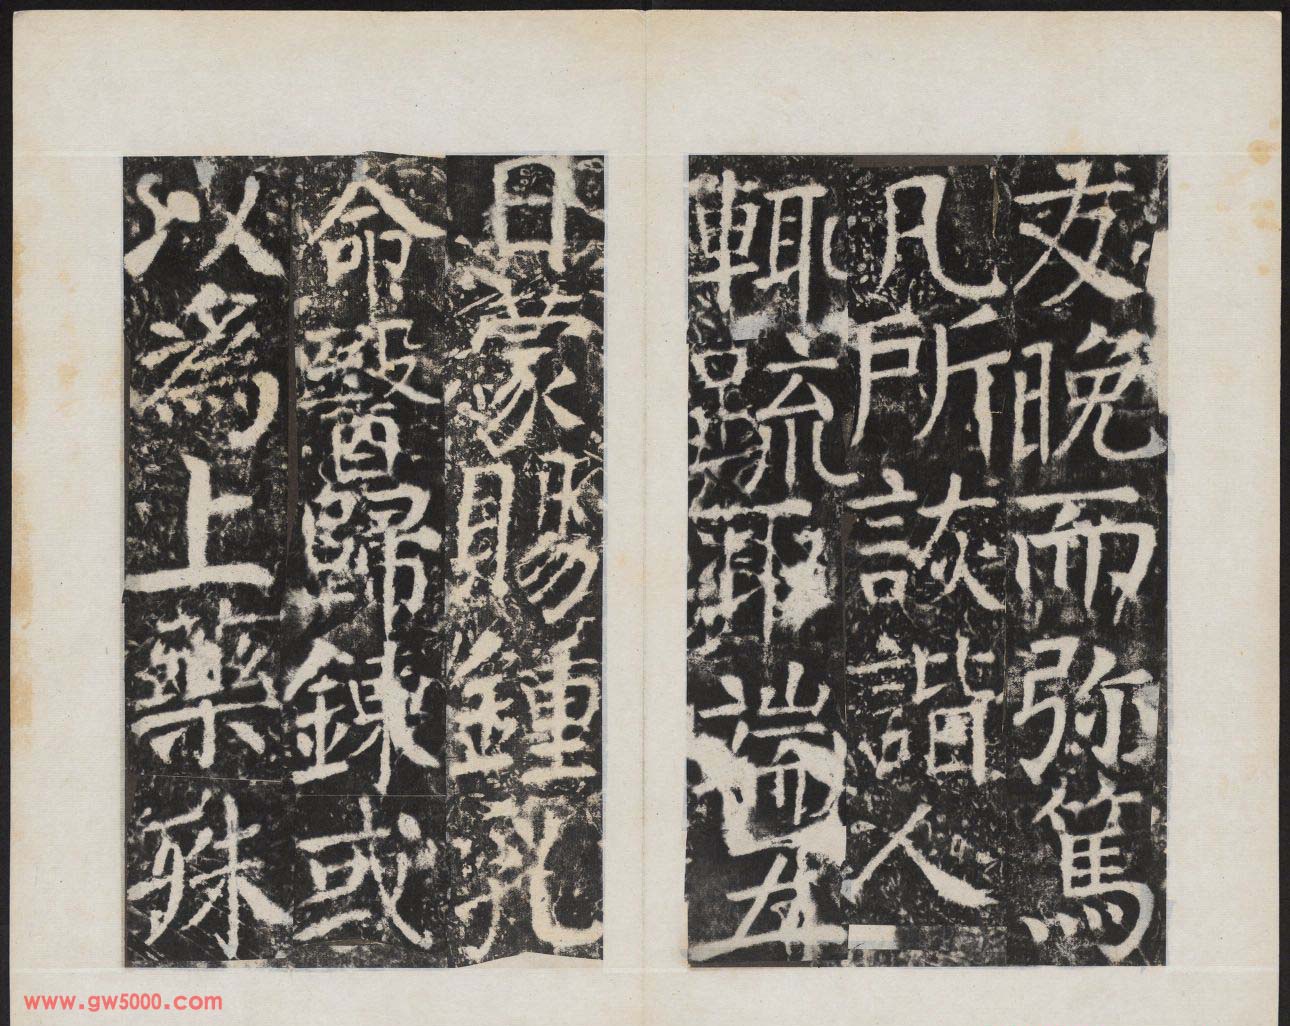 友晚而弥篤
凡所詼諧人
輒疏耳端五
日蒙賜鍾乳
命醫歸鍊或
以為上藥殊
www.gw5000.com